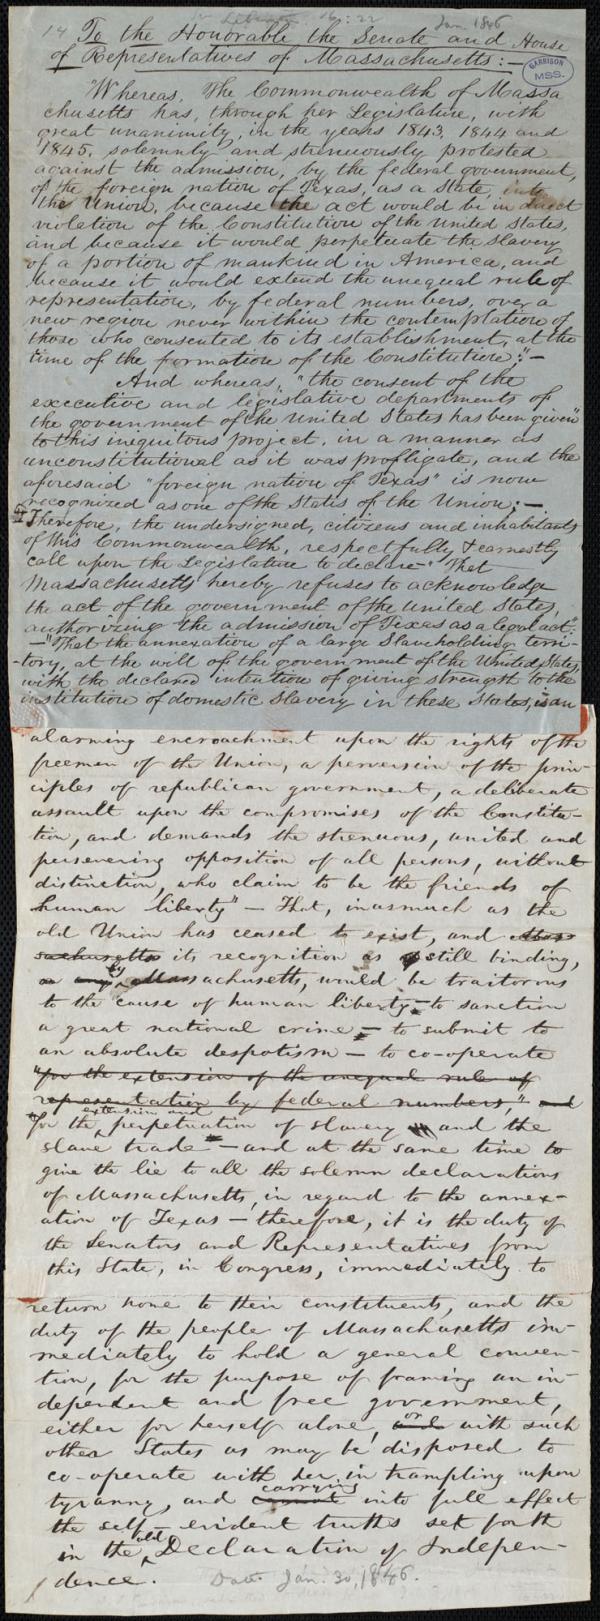 in Liberator 16:22 Jan. 1846
14 To the Honorable the Senate and House
of Representatives of Massachusetts:—
GARRISON
MSS.
"Whereas, The Commonwealth of Massa
chusetts has, through her Legislature, with
great unanimity, in the years 1843, 1844 and
1845, solemnly and strenuously protested
against the admission, by the federal government,
of the foreign nation of Texas, as a State, into
the Union, because the act would be in direct
violation of the Constitution of the United States,
and because it would perpetuate the slavery
of a portion of mankind in America, and
because it would extend the unequal rule of
representation, by federal numbers, over a
new region never within the contemplation of
those who consented to its establishment, at the
time of the formation of the Constitution:"—
And whereas, "the consent of the
executive and legislative departments of
the government of the United States has been given"
to this iniquitous project, in a manner as
unconstitutional as it was profligate, and the
aforesaid "foreign nation of Texas" is now
recognized as one of the States of the Union;—
Therefore, the undersigned, citizens and inhabitants
of this Commonwealth, respectfully & earnestly
call upon the Legislature to declare—"That
Massachusetts hereby refuses to acknowledge
the act of the government of the United States,
authorizing the admission of Texas as a legal act":
—"That the annexation of a large Slaveholding terri-
-tory, at the will of the government of the United States,
with the declared intention of giving strength to the
institution of domestic slavery in these States, is an
alarming encroachment upon the rights of the
freemen of the Union, a perversion of the prin-
ciples of republican government, a deliberate
assault upon the compromises of the Constitu-
tion, and demands the strenuous, united and
persevering opposition of all persons, without
distinction, who claim to be the friends of
human liberty"— That, inasmuch as the
old Union has ceased to exist, and Mass-
sachusetts its recognition as still binding,
by Massachusetts, would be traitorous
to the cause of human liberty—to sanction
a great national crime—to submit to
an absolute despotism—to co-operate
"for the extension of the unequal rule of
representation by federal numbers," and
"for the extension and perpetuation of slavery and the
slave trade"—and at the same time to
give the lie to all the solemn declarations
of Massachusetts, in regard to the annex-
ation of Texas—therefore, it is the duty of
the Senators and Representatives from
this State, in Congress, immediately to
return home to their constituents, and the
duty of the people of Massachusetts im-
mediately to hold a general conven-
tion, for the purpose of framing an in-
dependent and free government,
either for herself alone, and or with such
other States as may be disposed to
co-operate with her in trampling upon
tyranny, and carrying into full effect
the self-evident truths set forth
in the old Declaration of Indepen-
dence. Date Jan. 30, 1846.